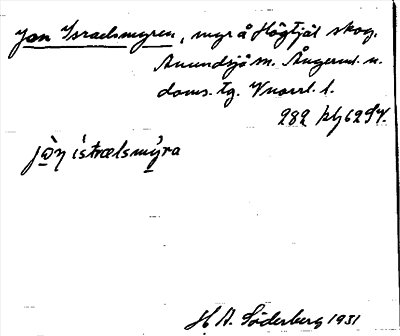 Jon Israelsmyren, myr å Högtjäl skog,
Anundsjö sn. Ångerml. n.
doms. tg. Vnorrl. l.
282 kbl 62 SV.
jò̠n ístrælsmy̠̍ra
H A. Söderberg 1931